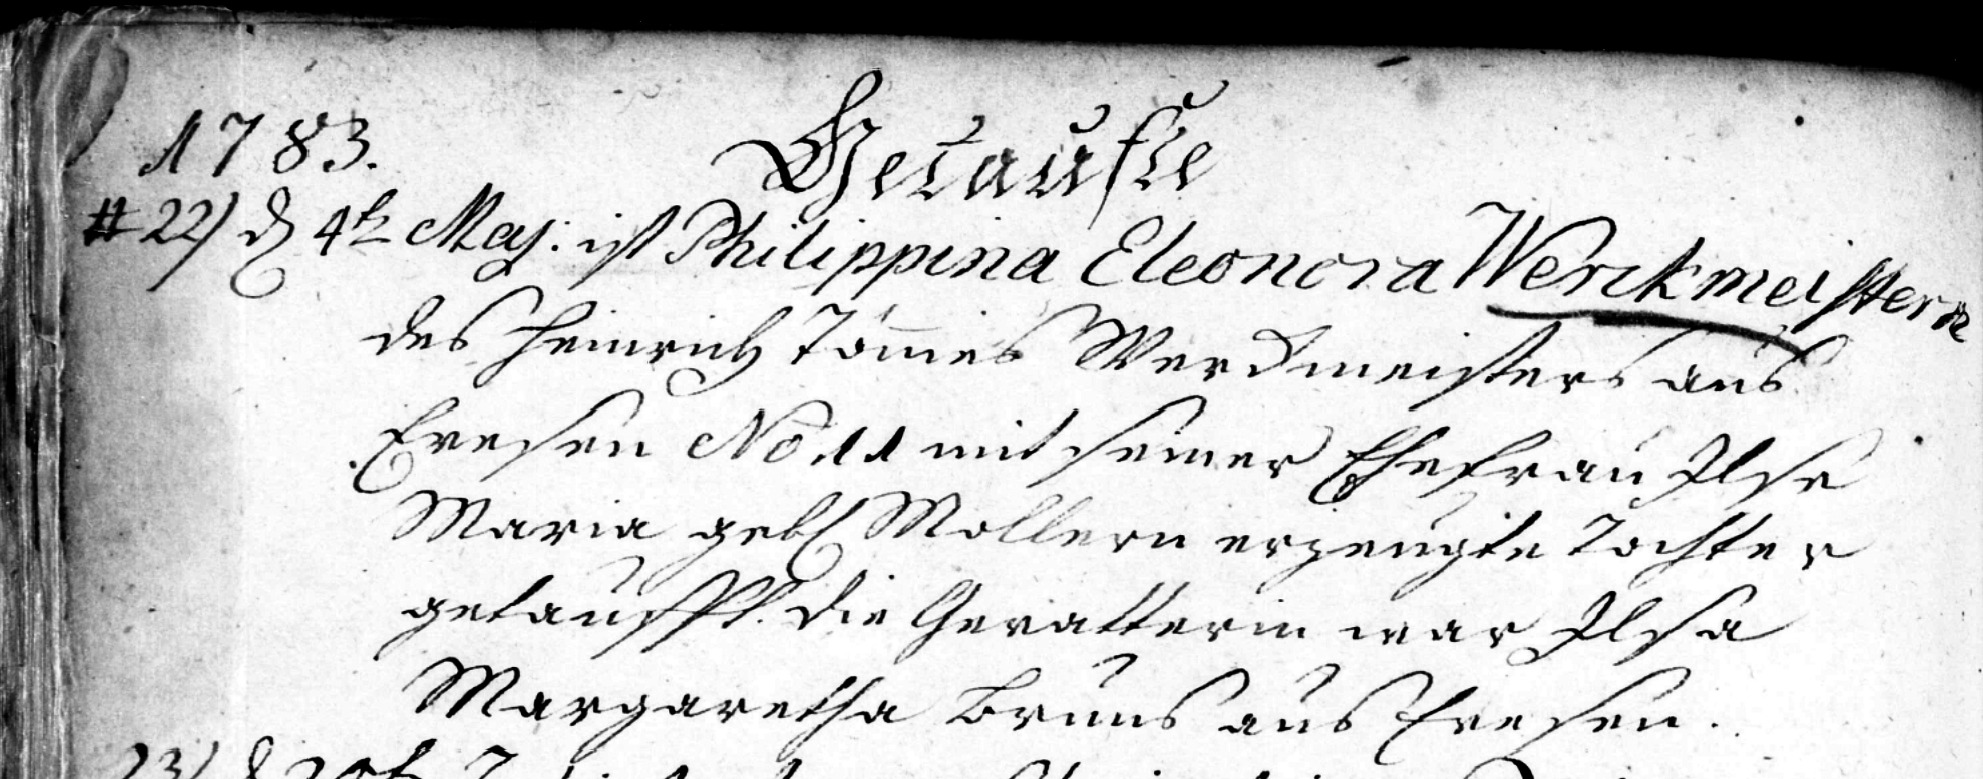 1783. Getaufte
# 22) d 4t May: ist Philippina Eleonora Werckmeistern
des Heinrich Tönnies Werckmeisters aus
Evesen No 11 mit seiner Ehefrau Ilse
Maria geb. Möllern erzeugte Tochter
getaufft. die Gevatterin war Ilsa
Margaretha Bruns aus Evesen.
23)